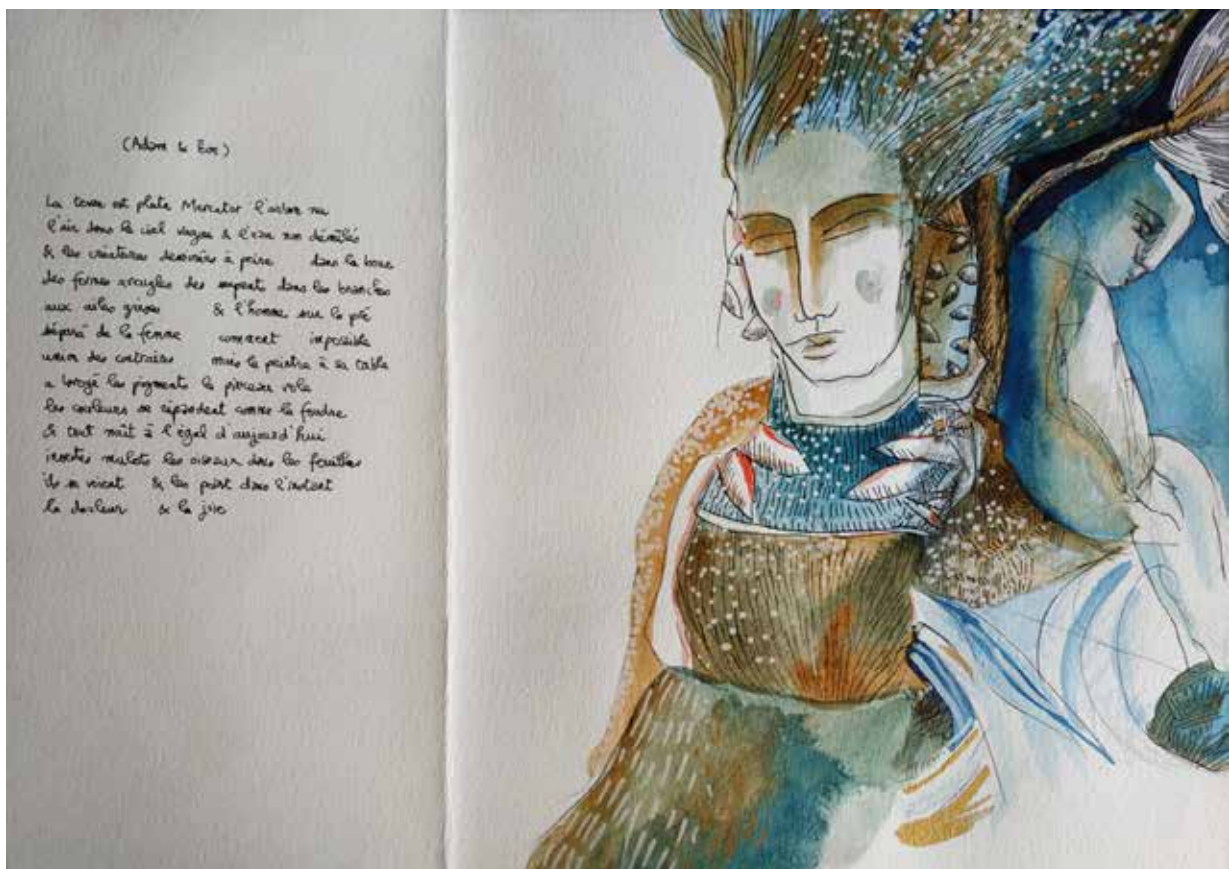 (Adam & Ève)
La terre est plate Mercator l'arbre nu
l'air dans le ciel vague & l'eau non démêlés
& les créatures dessinées à peine dans la boue
des formes aveugles des serpents dans les branches
aux ailes grises & l'homme sur le pré
séparé de la femme comment impossible
union des contraires mais le peintre à sa table
a broyé les pigments le pinceau vole
les couleurs se répandent comme la foudre
& tout naît à l'égal d'aujourd'hui
insectes mulots les oiseaux dans les feuilles
ils se voient & les peint dans l'instant
la douleur & la joie